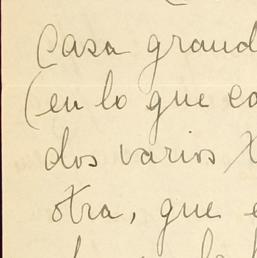 Casa grand
(en lo que co
dos varios
otra, que e